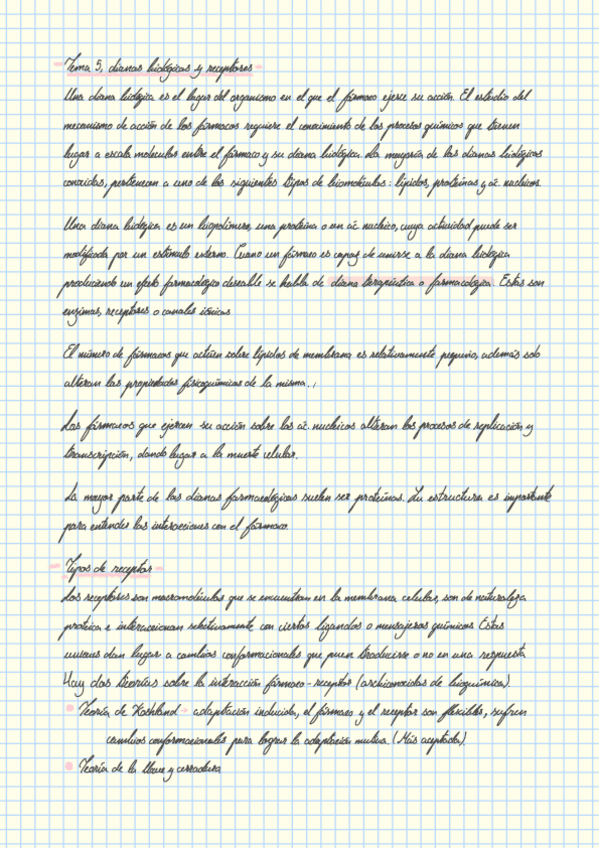 Tema 5, dianas biológicas y receptores
Una diana biológica es el lugar del organismo en el que el fármaco ejerce su acción. El estudio del
mecanismo de acción de los fármacos requiere el conocimiento de los procesos químicos que tienen
lugar a escala molecular entre el fármaco y su diana biológica. La mayoría de las dianas biológicas
conocidas, pertenecen a uno de los siguientes tipos de biomoléculas: lípidos, proteínas y ác. nucleicos.
Una diana biológica es un biopolímero, una proteína o un ác. nucleico, cuya actividad puede ser
modificada por un estímulo externo. Cuano un fármaco es capaz de unirse a la diana biológica
produciendo un efecto farmacológico deseable se habla de diana terapéutica o farmacológica. Estas son
enzimas, receptores o canales iónicos
El número de fármacos que actúen sobre lípidos de membrana es relativamente pequeño, además solo
alteran las propiedades fisicoquímicas de la misma.
Los fármacos que ejercen su acción sobre los ác. nucleicos alteran los procesos de replicación y
transcripción, dando lugar a la muerte celular.
La mayor parte de las dianas farmacológicas suelen ser proteínas. Su estructura es importante
para entender las interacciones con el fármaco.
Tipos de receptor
Los receptores son macromoléculas que se encuentran en la membrana celular, son de naturaleza
proteica e interaccionan selectivamente con ciertos ligandos o mensajeros químicos. Estas
uniones dan lugar a cambios conformacionales que pueen traducirse o no en una respuesta.
Hay dos teorías sobre la interacción fármaco-receptor (archiconocidas de bioquímica).
Teoría de Koshland → adaptación inducida, el fármaco y el receptor son flexibles, sufren
cambios conformacionales para lograr la adaptación mutua. (Más aceptada).
Teoría de la llave y cerradura